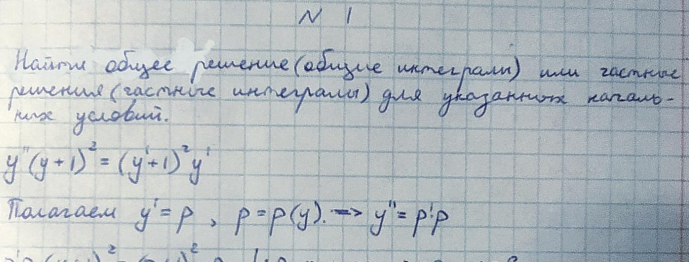 N 1
Найти общее решение (общие интегралы) или частные
решения (частные интегралы) для указанных началь-
ных условий.
y''(y+1)² = (y'+1)² y'
Полагаем y' = p , p = p(y). => y'' = p'p